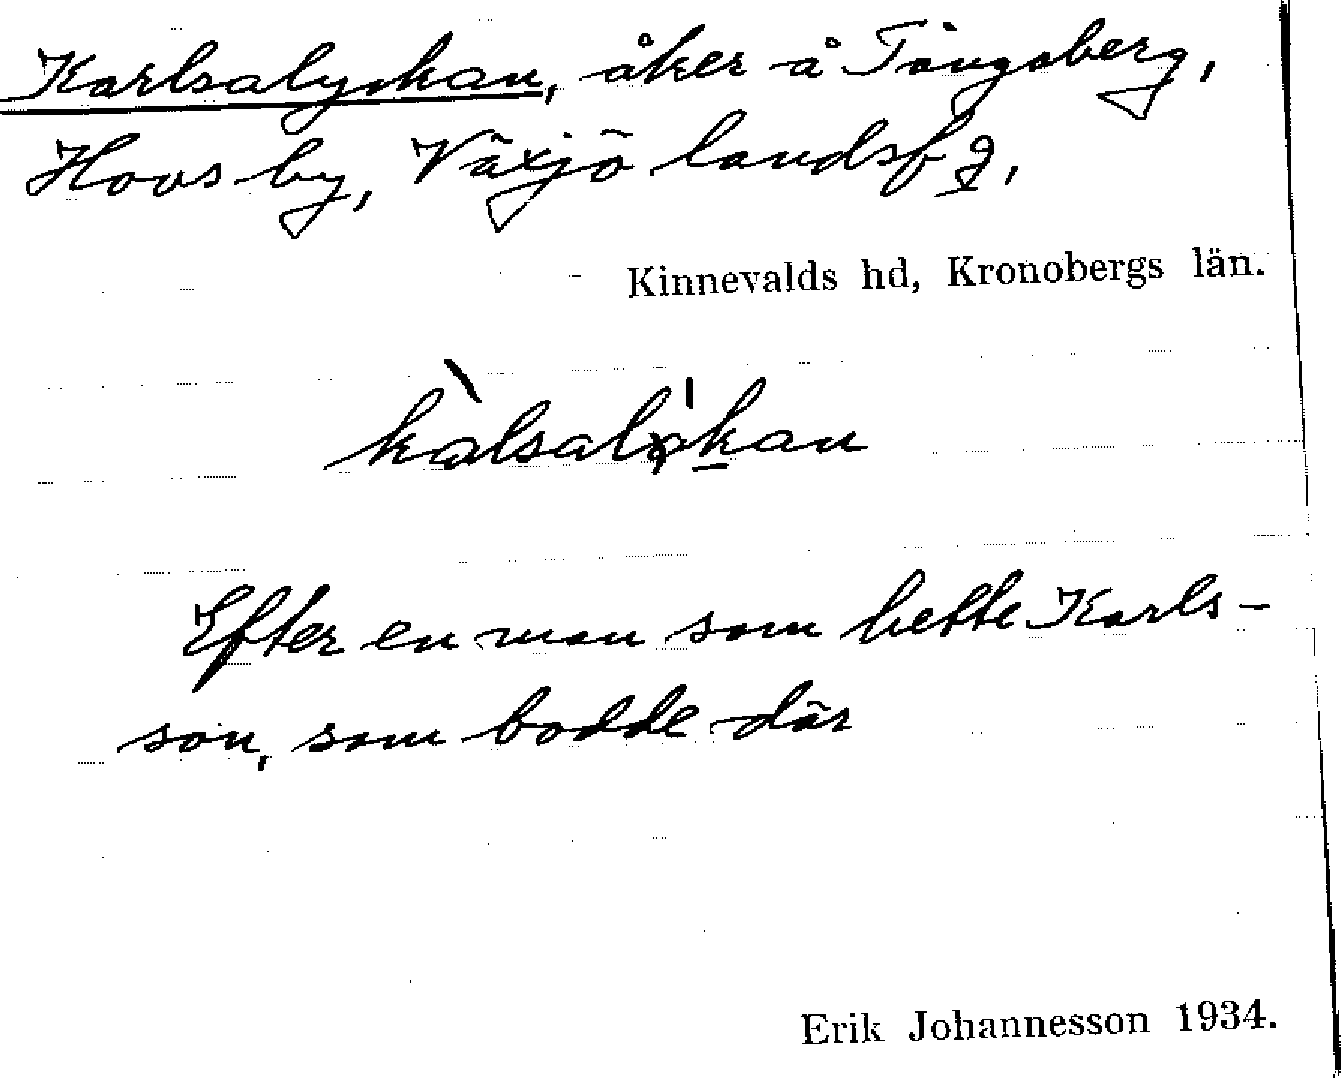 Karlsalyckan, åker å Tångaberg,
Hovs by, Växjö landsf g,
Kinnevalds hd, Kronobergs län.
Efter en man som hette Karls-
son, som bodde där
Erik Johannesson 1934.